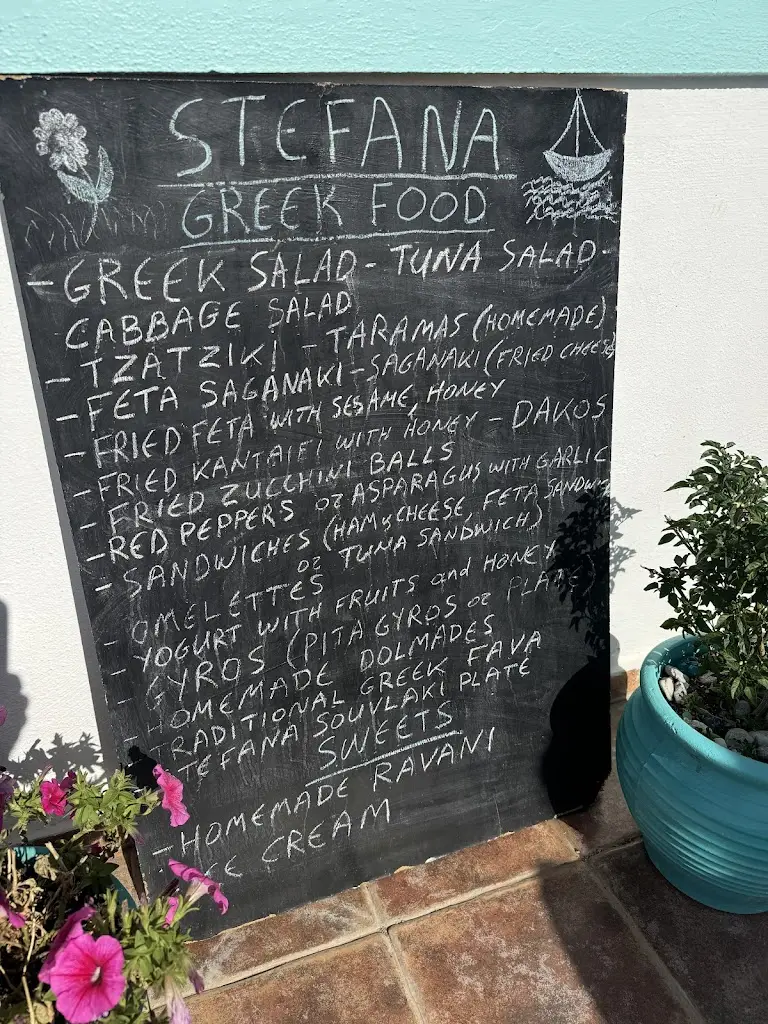 STEFANA
GREEK FOOD
- GREEK SALAD - TUNA SALAD -
CABBAGE SALAD
- TZATZIKI - TARAMAS (HOMEMADE)
- FETA SAGANAKI - SAGANAKI (FRIED CHEESE)
- FRIED FETA WITH SESAME, HONEY
- FRIED KANTAIFI WITH HONEY - DAKOS
- FRIED ZUCCHINI BALLS
- RED PEPPERS or ASPARAGUS WITH GARLIC
- SANDWICHES (HAM & CHEESE, FETA SANDWI
or TUNA SANDWICH)
- OMELETTES
- YOGURT WITH FRUITS and HONEY
- GYROS (PITA GYROS or PLATE
- HOMEMADE DOLMADES
TRADITIONAL GREEK FAVA
TEFANA SOUVLAKI PLATE
SWEETS
- HOMEMADE RAVANI
CE CREAM